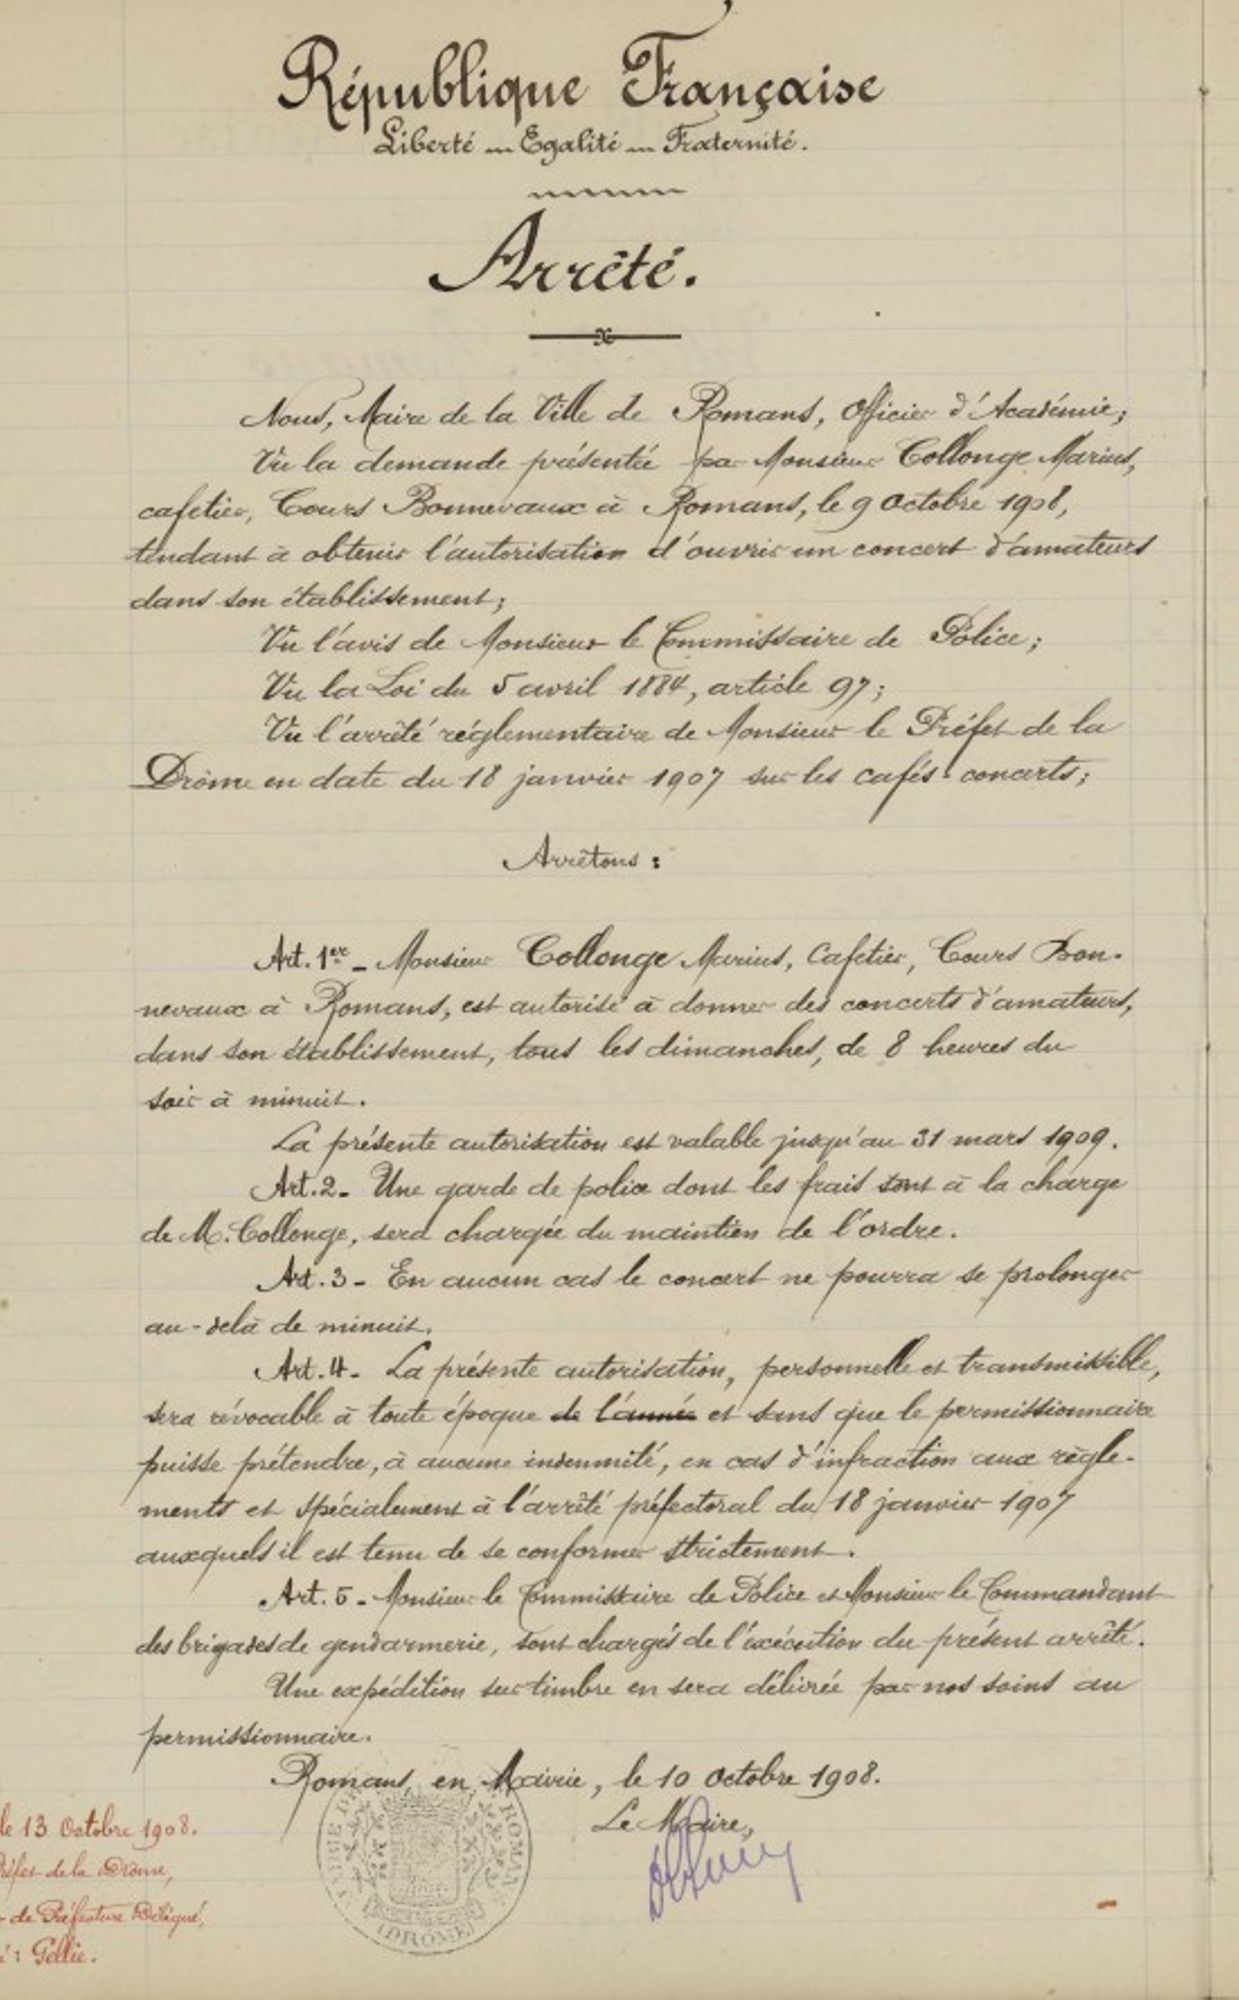 République Française
Liberté — Egalité — Fraternité.
Arrêté.
Nous, Maire de la Ville de Romans, Officier d'Académie;
Vu la demande présentée par Monsieur Collonge Marius,
cafetier, Cours Bonnevaux à Romans, le 9 Octobre 1908,
tendant à obtenir l'autorisation d'ouvrir un concert d'amateurs
dans son établissement;
Vu l'avis de Monsieur le Commissaire de Police;
Vu la Loi du 5 avril 1884, article 97;
Vu l'arrêté réglementaire de Monsieur le Préfet de la
Drôme en date du 18 janvier 1907 sur les cafés-concerts;
Arrêtons :
Art. 1er - Monsieur Collonge Marius, Cafetier, Cours Bon-
nevaux à Romans, est autorisé à donner des concerts d'amateurs,
dans son établissement, tous les dimanches, de 8 heures du
soir à minuit.
La présente autorisation est valable jusqu'au 31 mars 1909.
Art. 2 - Une garde de police dont les frais sont à la charge
de M. Collonge, sera chargée du maintien de l'ordre.
Art. 3 - En aucun cas le concert ne pourra se prolonger
au-delà de minuit.
Art. 4 - La présente autorisation, personnelle et transmissible,
sera révocable à toute époque de l'année et sans que le permissionnaire
puisse prétendre, à aucune indemnité, en cas d'infraction aux règle-
ments et spécialement à l'arrêté préfectoral du 18 janvier 1907
auxquels il est tenu de se conformer strictement.
Art. 5 - Monsieur le Commissaire de Police et Monsieur le Commandant
des brigades de gendarmerie, sont chargés de l'exécution du présent arrêté.
Une expédition sur timbre en sera délivrée par nos soins au
permissionnaire.
Romans, en Mairie, le 10 Octobre 1908.
Le Maire,
MAIRIE DE ROMANS
(DRÔME)
le 13 Octobre 1908.
Préfet de la Drôme,
de Préfecture Délégué,
: Gellie.